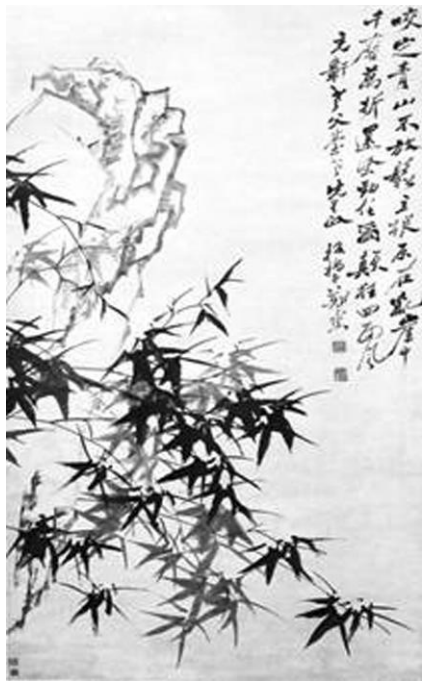 咬定青山不放鬆立根原在亂崖中
千磨萬折還堅勁任爾顛狂四面風
板橋鄭燮